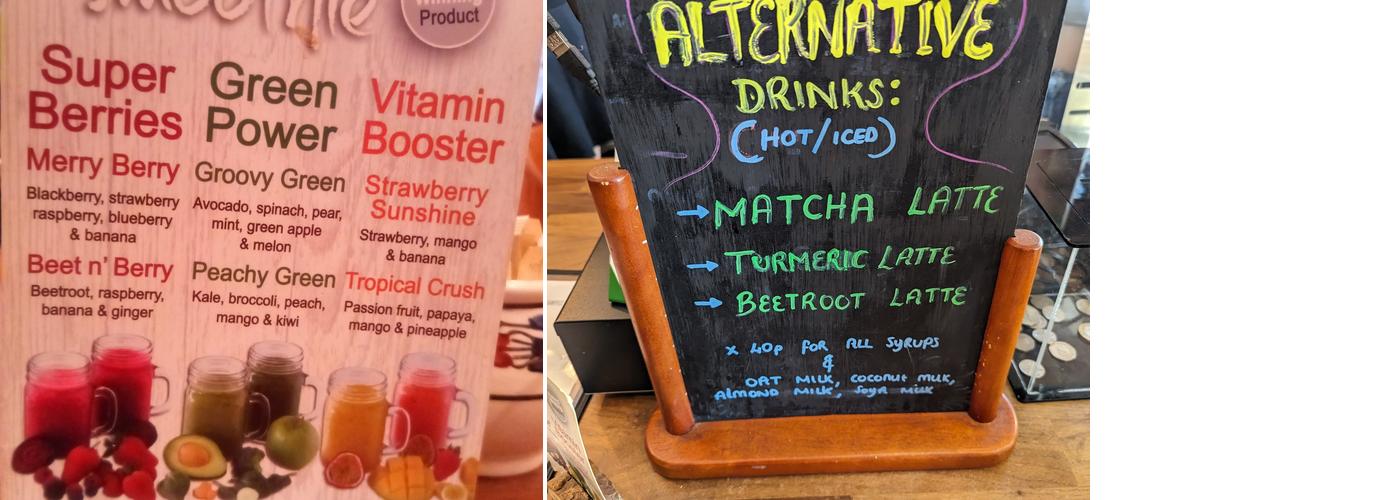 smoothie
Winning
Product
Super
Berries
Merry Berry
Blackberry, strawberry
raspberry, blueberry
& banana
Beet n' Berry
Beetroot, raspberry,
banana & ginger
Green
Power
Groovy Green
Avocado, spinach, pear,
mint, green apple
& melon
Peachy Green
Kale, broccoli, peach,
mango & kiwi
Vitamin
Booster
Strawberry
Sunshine
Strawberry, mango
& banana
Tropical Crush
Passion fruit, papaya,
mango & pineapple
ALTERNATIVE
DRINKS:
(HOT/ICED)
→ MATCHA LATTE
→ TURMERIC LATTE
→ BEETROOT LATTE
x 40p FOR ALL SYRUPS
&
OAT MILK, COCONUT MILK,
ALMOND MILK, SOYA MILK